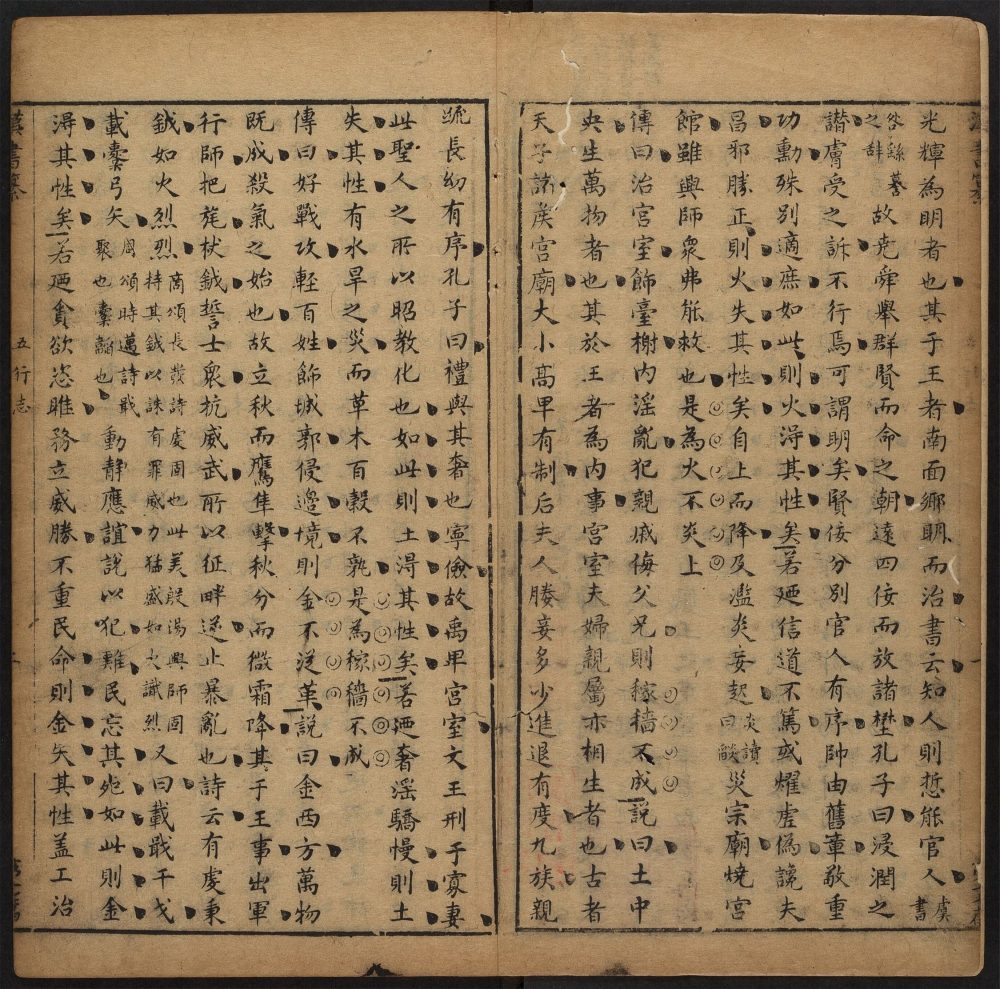 光輝為明者也其于王者南面鄉明而治書云知人則悊能官人虞書
咎繇謩之辭故堯舜舉群賢而命之朝遠四佞而放諸壄孔子曰浸潤之
譖膚受之訴不行焉可謂明矣賢佞分別官人有序帥由舊章敬重
功勳殊別適庶如此則火淂其性矣若廼信道不篤或燿虗偽讒夫
昌邪勝正則火失其性矣自上而降及濫炎妄起炎讀曰燄災宗廟燒宮
館雖興師眾弗能救也是為火不炎上
傳曰治宮室飾臺榭內淫亂犯親戚侮父兄則稼穡不成說曰土中
央生萬物者也其於王者為內事宮室夫婦親屬亦相生者也古者
天子諸矦宮廟大小高卑有制后夫人媵妾多少進退有度九族親
疏長幼有序孔子曰禮與其奢也寧儉故禹卑宮室文王刑于寡妻
此聖人之所以昭教化也如此則土淂其性矣若廼奢淫驕慢則土
失其性有水旱之災而草木百穀不孰是為稼穡不成
傳曰好戰攻輕百姓飾城郭侵邊境則金不從革說曰金西方萬物
既成殺氣之始也故立秋而鷹隼擊秋分而微霜降其于王事出軍
行師把旄杖鉞誓士衆抗威武所以征畔逆止暴亂也詩云有虔秉
鉞如火烈烈商頌長發詩虔固也此美殷湯興師固持其鉞以誅有罪威力猛盛如火熾烈又曰載戢干戈
載櫜弓矢周頌時邁詩戢聚也櫜韜也動靜應誼說以犯難民忘其死如此則金
淂其性矣若廼貪欲恣睢務立威勝不重民命則金失其性盖工冶
五行志